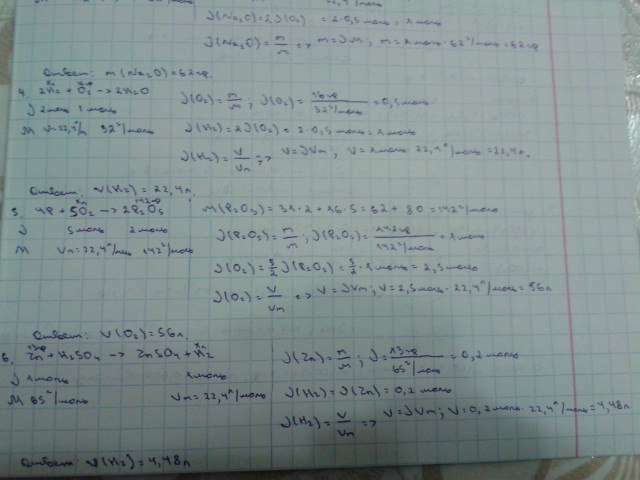 ν(Na₂O) = 2ν(O₂) = 2·0,5 моль = 1 моль
ν(Na₂O) = m/M => m = νM; m = 1 моль · 62 г/моль = 62 г
Ответ: m(Na₂O) = 62 г.
4. 2H₂ + O₂ → 2H₂O
ν 2 моль 1 моль
M Vm=22,4 л/моль 32 г/моль
ν(O₂) = m/M; ν(O₂) = 16 г / 32 г/моль = 0,5 моль
ν(H₂) = 2ν(O₂) = 2·0,5 моль = 1 моль
ν(H₂) = V/Vm => V = νVm; V = 1 моль · 22,4 л/моль = 22,4 л.
Ответ: V(H₂) = 22,4 л.
5. 4P + 5O₂ → 2P₂O₅
142 г
ν 5 моль 2 моль
M Vm = 22,4 л/моль 142 г/моль
M(P₂O₅) = 31·2 + 16·5 = 62 + 80 = 142 г/моль
ν(P₂O₅) = m/M; ν(P₂O₅) = 142 г / 142 г/моль = 1 моль
ν(O₂) = 5/2 ν(P₂O₅) = 5/2 · 1 моль = 2,5 моль
ν(O₂) = V/Vm => V = νVm; V = 2,5 моль · 22,4 л/моль = 56 л
Ответ: V(O₂) = 56 л.
6. Zn + H₂SO₄ → ZnSO₄ + H₂
13 г
ν 1 моль 1 моль
M 65 г/моль Vm = 22,4 л/моль
ν(Zn) = m/M; ν = 13 г / 65 г/моль = 0,2 моль
ν(H₂) = ν(Zn) = 0,2 моль
ν(H₂) = V/Vm => V = νVm; V = 0,2 моль · 22,4 л/моль = 4,48 л
Ответ: V(H₂) = 4,48 л